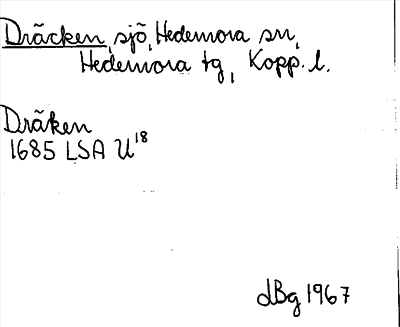 Dräcken, sjö, Hedemora sn,
Hedemora tg, Kopp. l.
Dräken
1685 LSA U18
dBg 1967